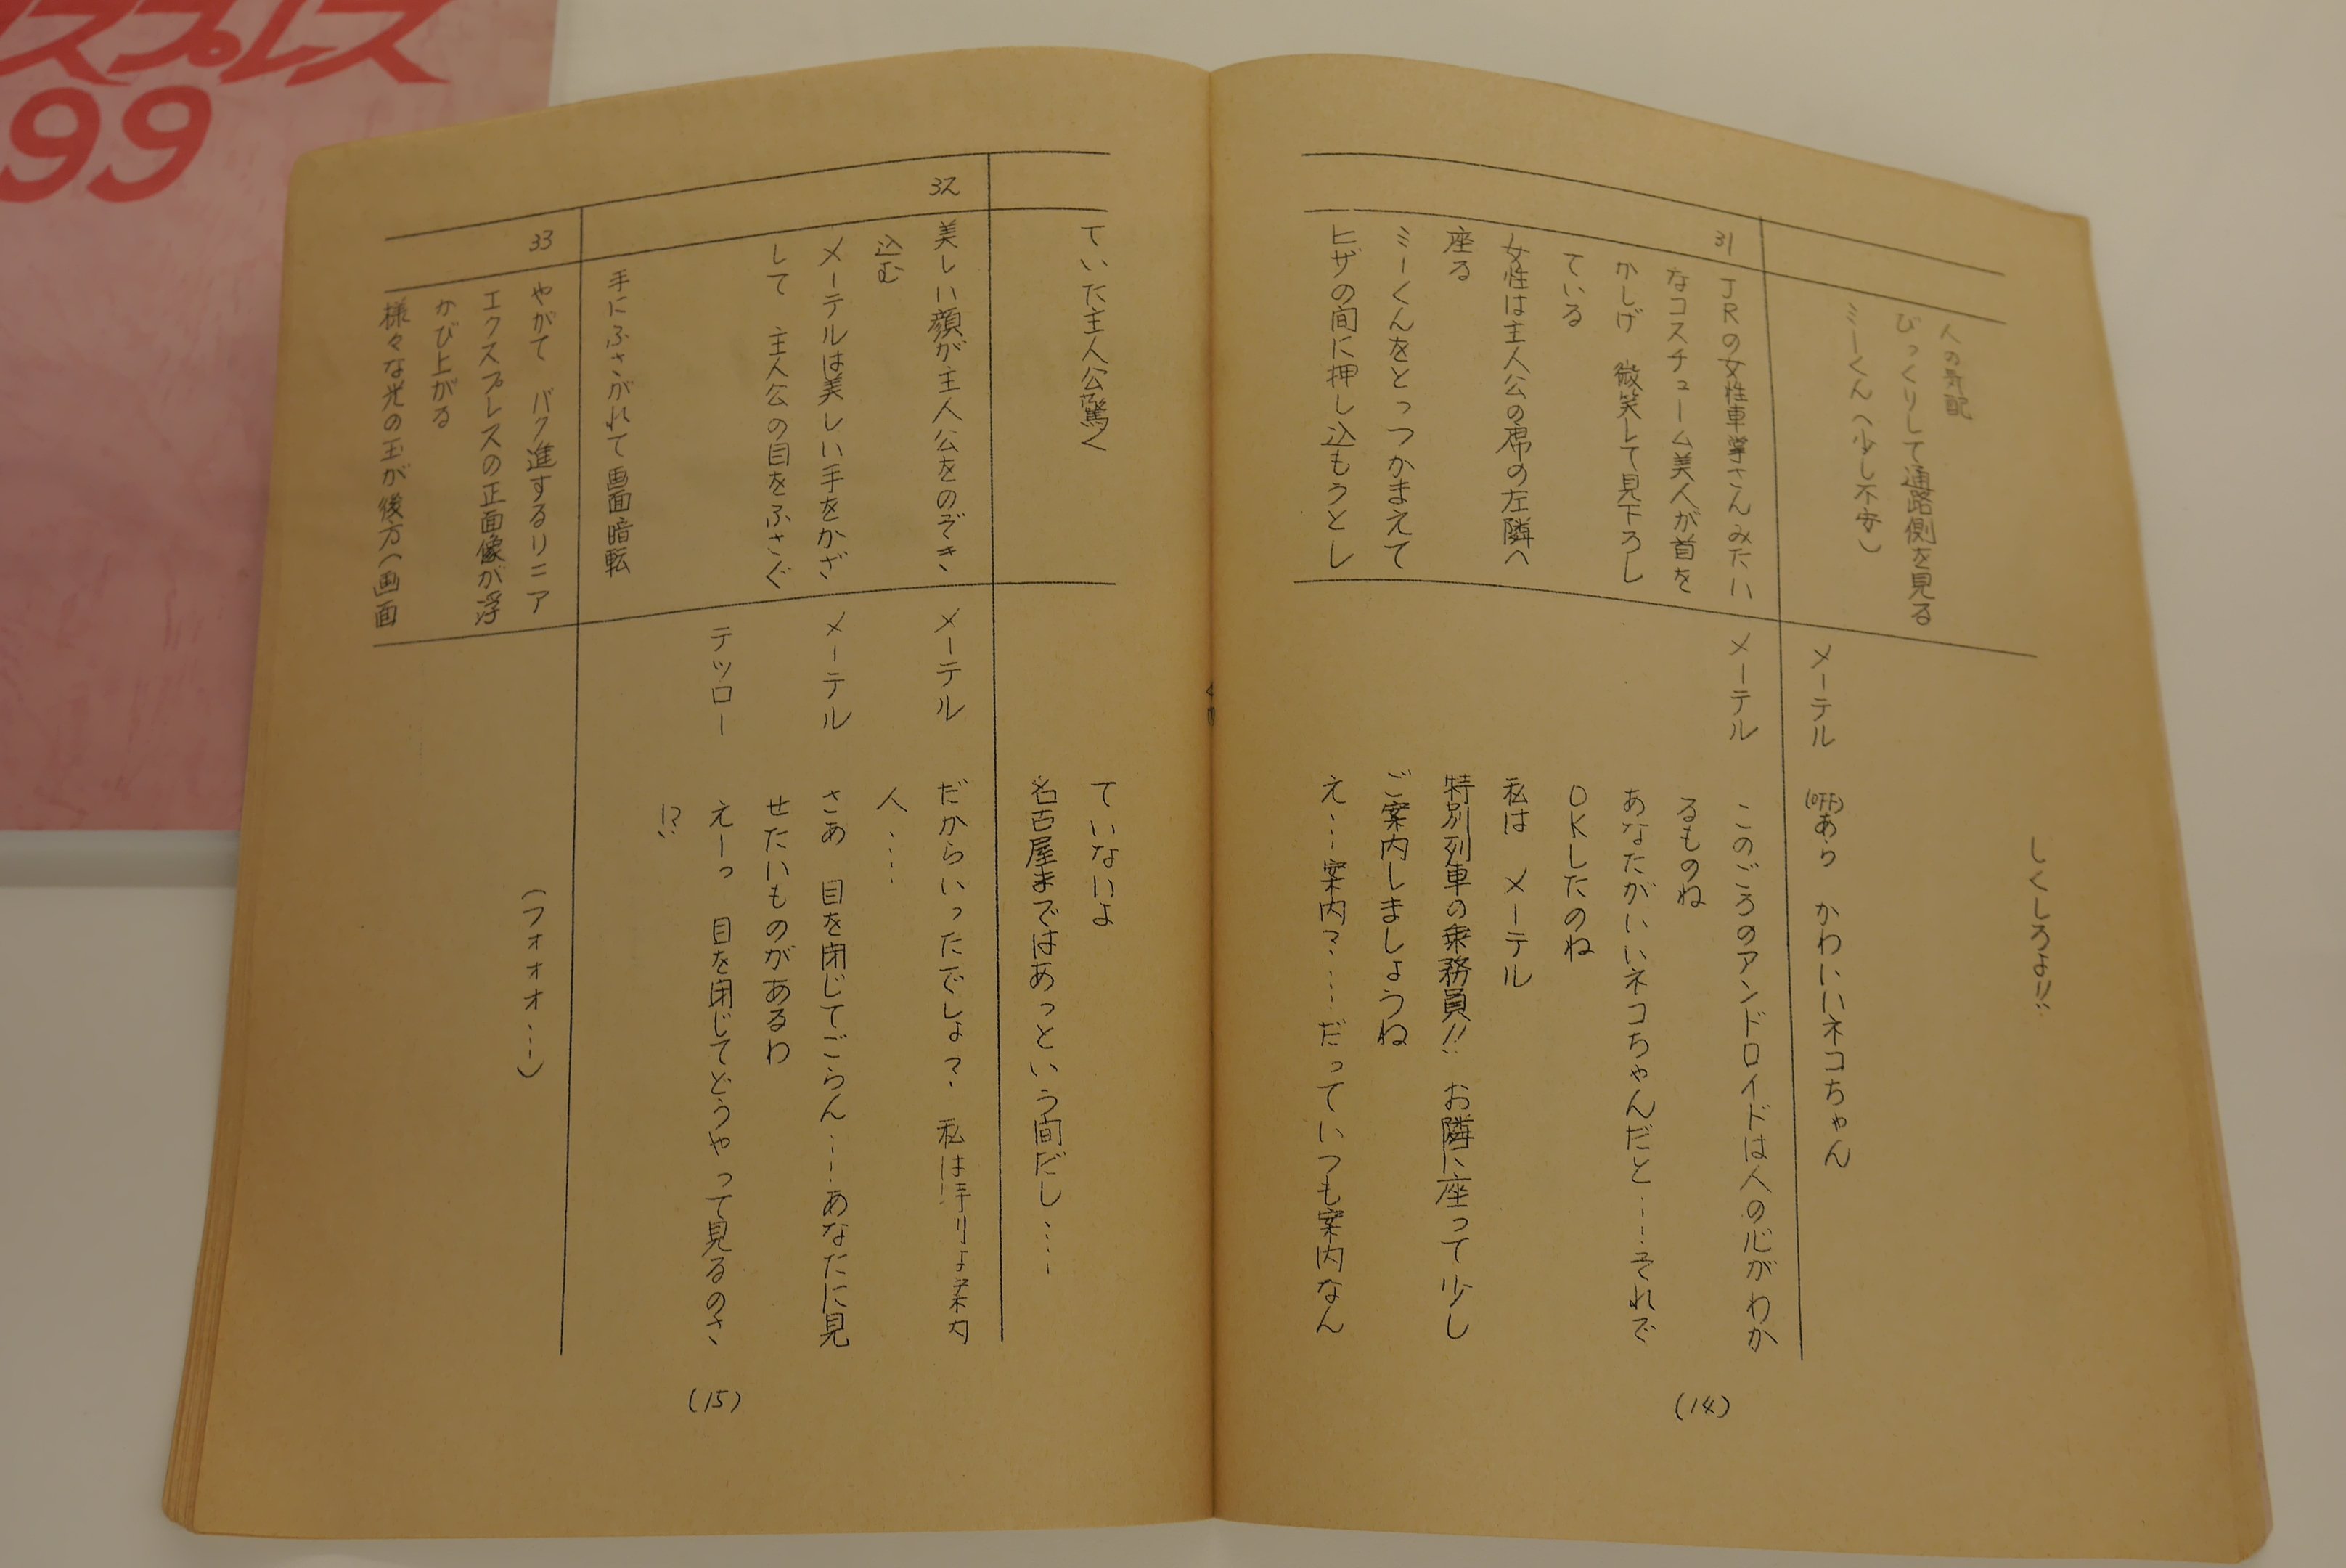 スプレス
99
人の気配
びっくりして通路側を見る
ミーくん(少し不安)
しくしろよ!!
メーテル (OFF)あら かわいいネコちゃん
31
JRの女性車掌さんみたい
なコスチューム美人が首を
かしげ 微笑して見下ろし
ている
女性は主人公の席の左隣へ
座る
ミーくんをとっつかまえて
ヒザの間に押し込もうとし
メーテル このごろのアンドロイドは人の心がわか
るものね
あなたがいいネコちゃんだと……それで
OKしたのね
私は メーテル
特別列車の乗務員!! お隣に座って少し
ご案内しましょうね
え……案内?……だっていつも案内なん
(14)
ていた主人公驚く
ていないよ
名古屋まではあっという間だし……
32
美しい顔が主人公をのぞき
込む
メーテルは美しい手をかざ
して 主人公の目をふさぐ
手にふさがれて画面暗転
メーテル だからいったでしょ? 私は特別な案内
人……
メーテル さあ 目を閉じてごらん……あなたに見
せたいものがあるわ
テツロー えーっ 目を閉じてどうやって見るのさ
!?
33
やがて バク進するリニア
エクスプレスの正面像が浮
かび上がる
様々な光の玉が後方(画面
(フォオオ……)
(15)